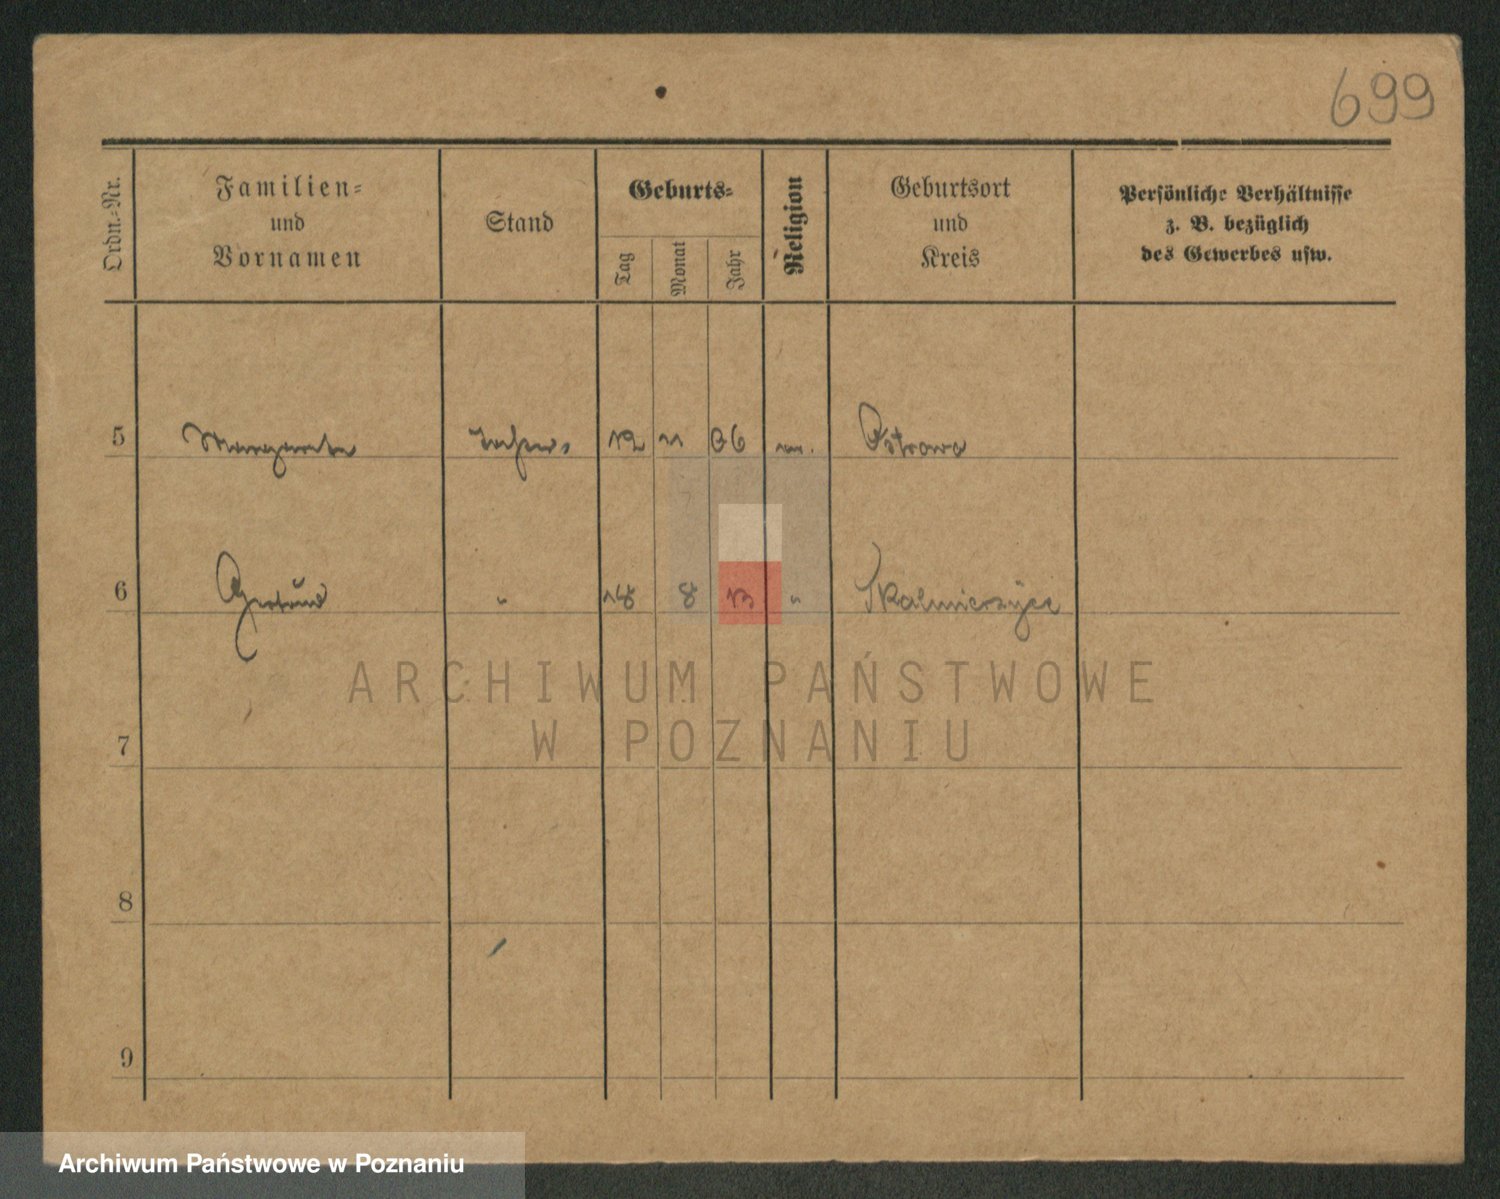 699
Ordn.-Nr.
Familien-
und
Vornamen
Stand
Geburts-
Tag
Monat
Jahr
Religion
Geburtsort
und
Kreis
Persönliche Verhältnisse
z. B. bezüglich
des Gewerbes usw.
5 Margarete 12 11 06 Ostrowo
6 Gertrud " 18 8 13 " Skalmierzyce
7
8
9
ARCHIWUM PAŃSTWOWE
W POZNANIU
Archiwum Państwowe w Poznaniu